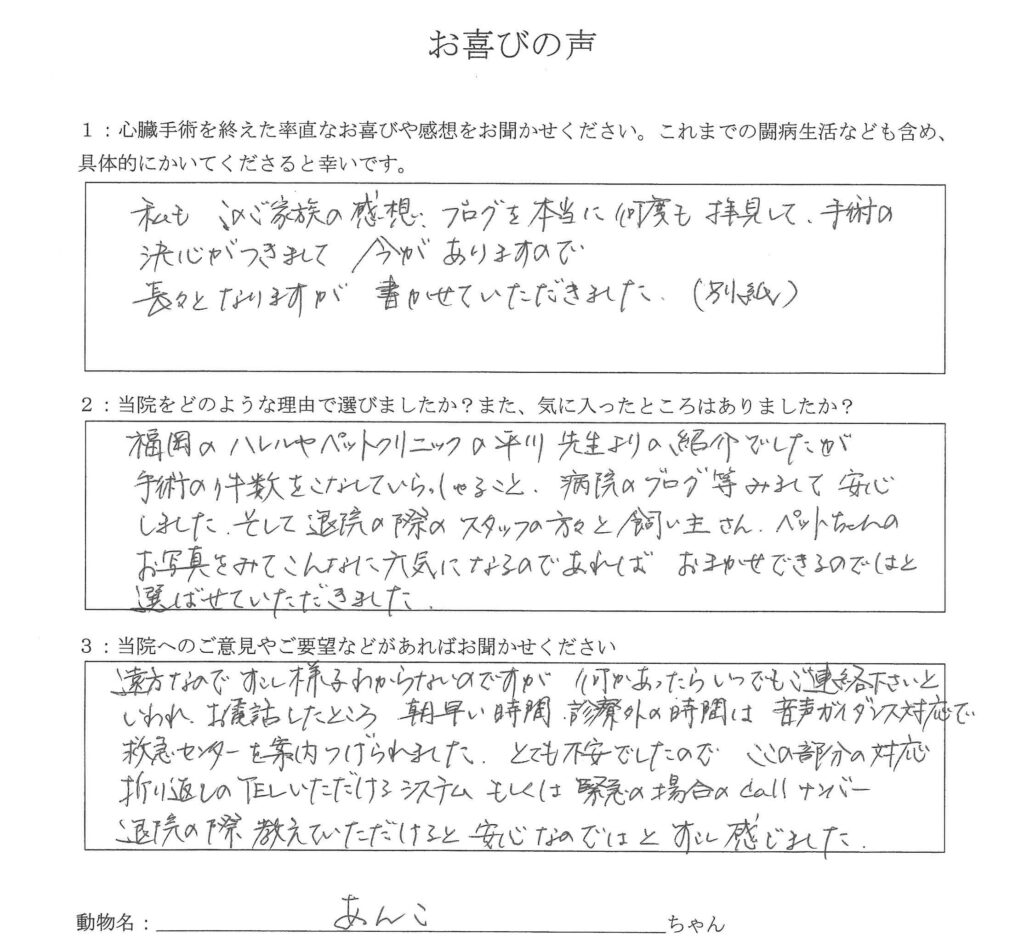 お喜びの声
1：心臓手術を終えた率直なお喜びや感想をお聞かせください。これまでの闘病生活なども含め、
具体的にかいてくださると幸いです。
私も このご家族の感想、ブログを本当に何度も 拝見して、手術の
決心がつきまして 今が ありますので
長々となりますが 書かせていただきました。（別紙）
2：当院をどのような理由で選びましたか？また、気に入ったところはありましたか？
福岡の ハレルヤペットクリニックの 平川 先生よりの紹介でしたが
手術の件数をこなしていらっしゃること、病院のブログ等みまして 安心
しました。そして 退院の際の スタッフの方々と 飼い主さん、ペットちゃんの
お写真をみて こんなに元気になるのであれば おまかせできるのではと
選ばせていただきました。
3：当院へのご意見やご要望などがあればお聞かせください
遠方なので すこし様子わからないのですが 何かあったらいつでもご連絡下さいと
いわれ、お電話したところ 朝早い時間、診療外の時間は 音声ガイダンス対応で
救急センターを案内つげられました。とても不安でしたので ここの部分の対応
折り返しの TELいただけるシステム もしくは 緊急の場合の callナンバー
退院の際 教えていただけると 安心なのではと すこし感じました。
動物名：あんこちゃん